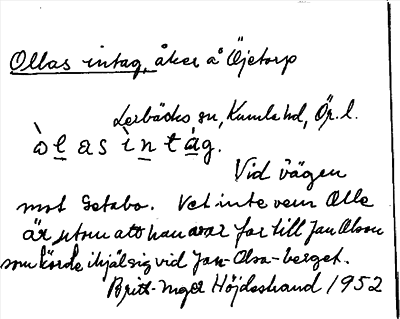 Ollas intag, åker å Öjetorp
Lerbäcks sn, Kumla hd, Ör. l.
òlas ìntág.
Vid vägen
mot Getabo. Vet inte vem Olle
är utom att han var far till Jan Olson
som körde ihjäl sig vid Jan-Olsa-berget.
Britt-Inger Höjdestrand 1952